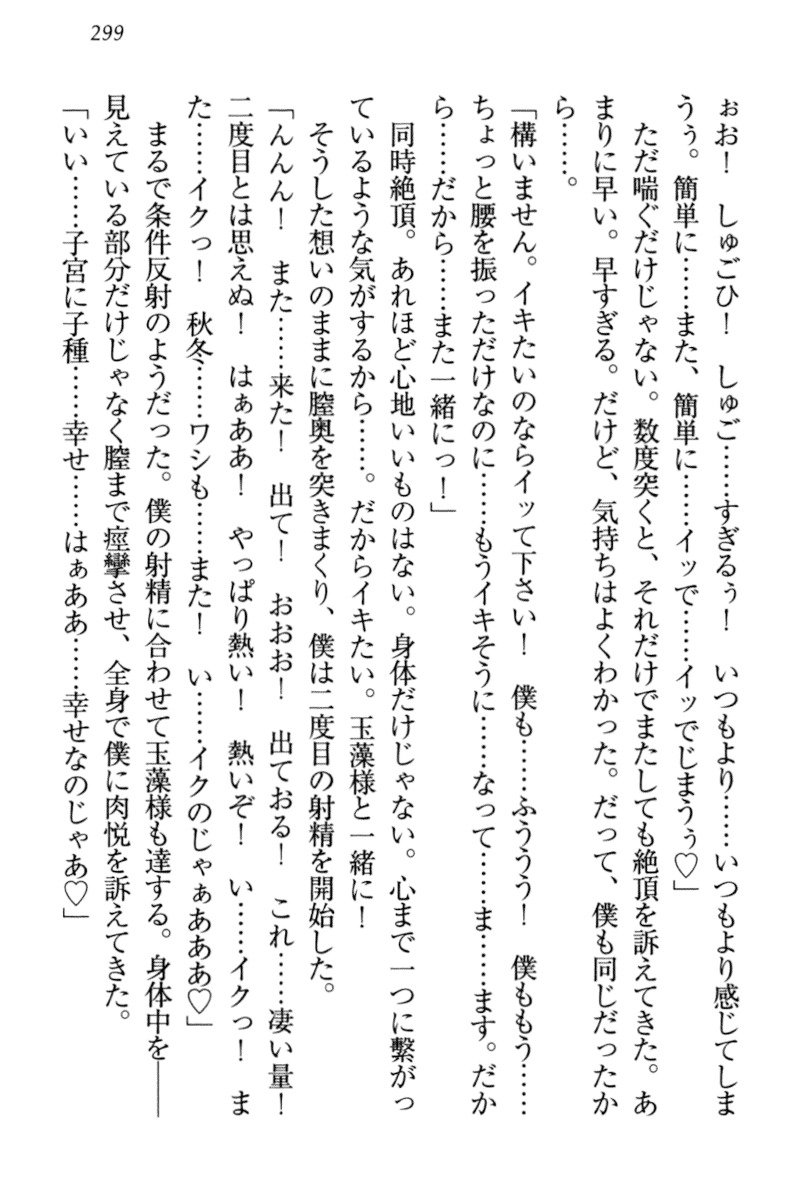 299
ぉお！　しゅごひ！　しゅご……すぎるぅ！　いつもより……いつもより感じてしま
うぅ。簡単に……また、簡単に……イッで……イッでじまうぅ♡」
　ただ喘ぐだけじゃない。数度突くと、それだけでまたしても絶頂を訴えてきた。あ
まりに早い。早すぎる。だけど、気持ちはよくわかった。だって、僕も同じだったか
ら……。
「構いません。イキたいのならイッて下さい！　僕も……ふううう！　僕ももう……
ちょっと腰を振っただけなのに……もうイキそうに……なって……ま……ます。だか
ら……だから……また一緒にっ！」
　同時絶頂。あれほど心地いいものはない。身体だけじゃない。心まで一つに繋がっ
ているような気がするから……。だからイキたい。玉藻様と一緒に！
　そうした想いのままに膣奥を突きまくり、僕は二度目の射精を開始した。
「んんん！　また……来た！　出て！　おおお！　出ておる！　これ……凄い量！
二度目とは思えぬ！　はぁああ！　やっぱり熱い！　熱いぞ！　い……イクっ！　ま
た……イクっ！　秋冬……ワシも……また！　い……イクのじゃぁあああ♡」
　まるで条件反射のようだった。僕の射精に合わせて玉藻様も達する。身体中を――
見えている部分だけじゃなく膣まで痙攣させ、全身で僕に肉悦を訴えてきた。
「いい……子宮に子種……幸せ……はぁああ……幸せなのじゃあ♡」